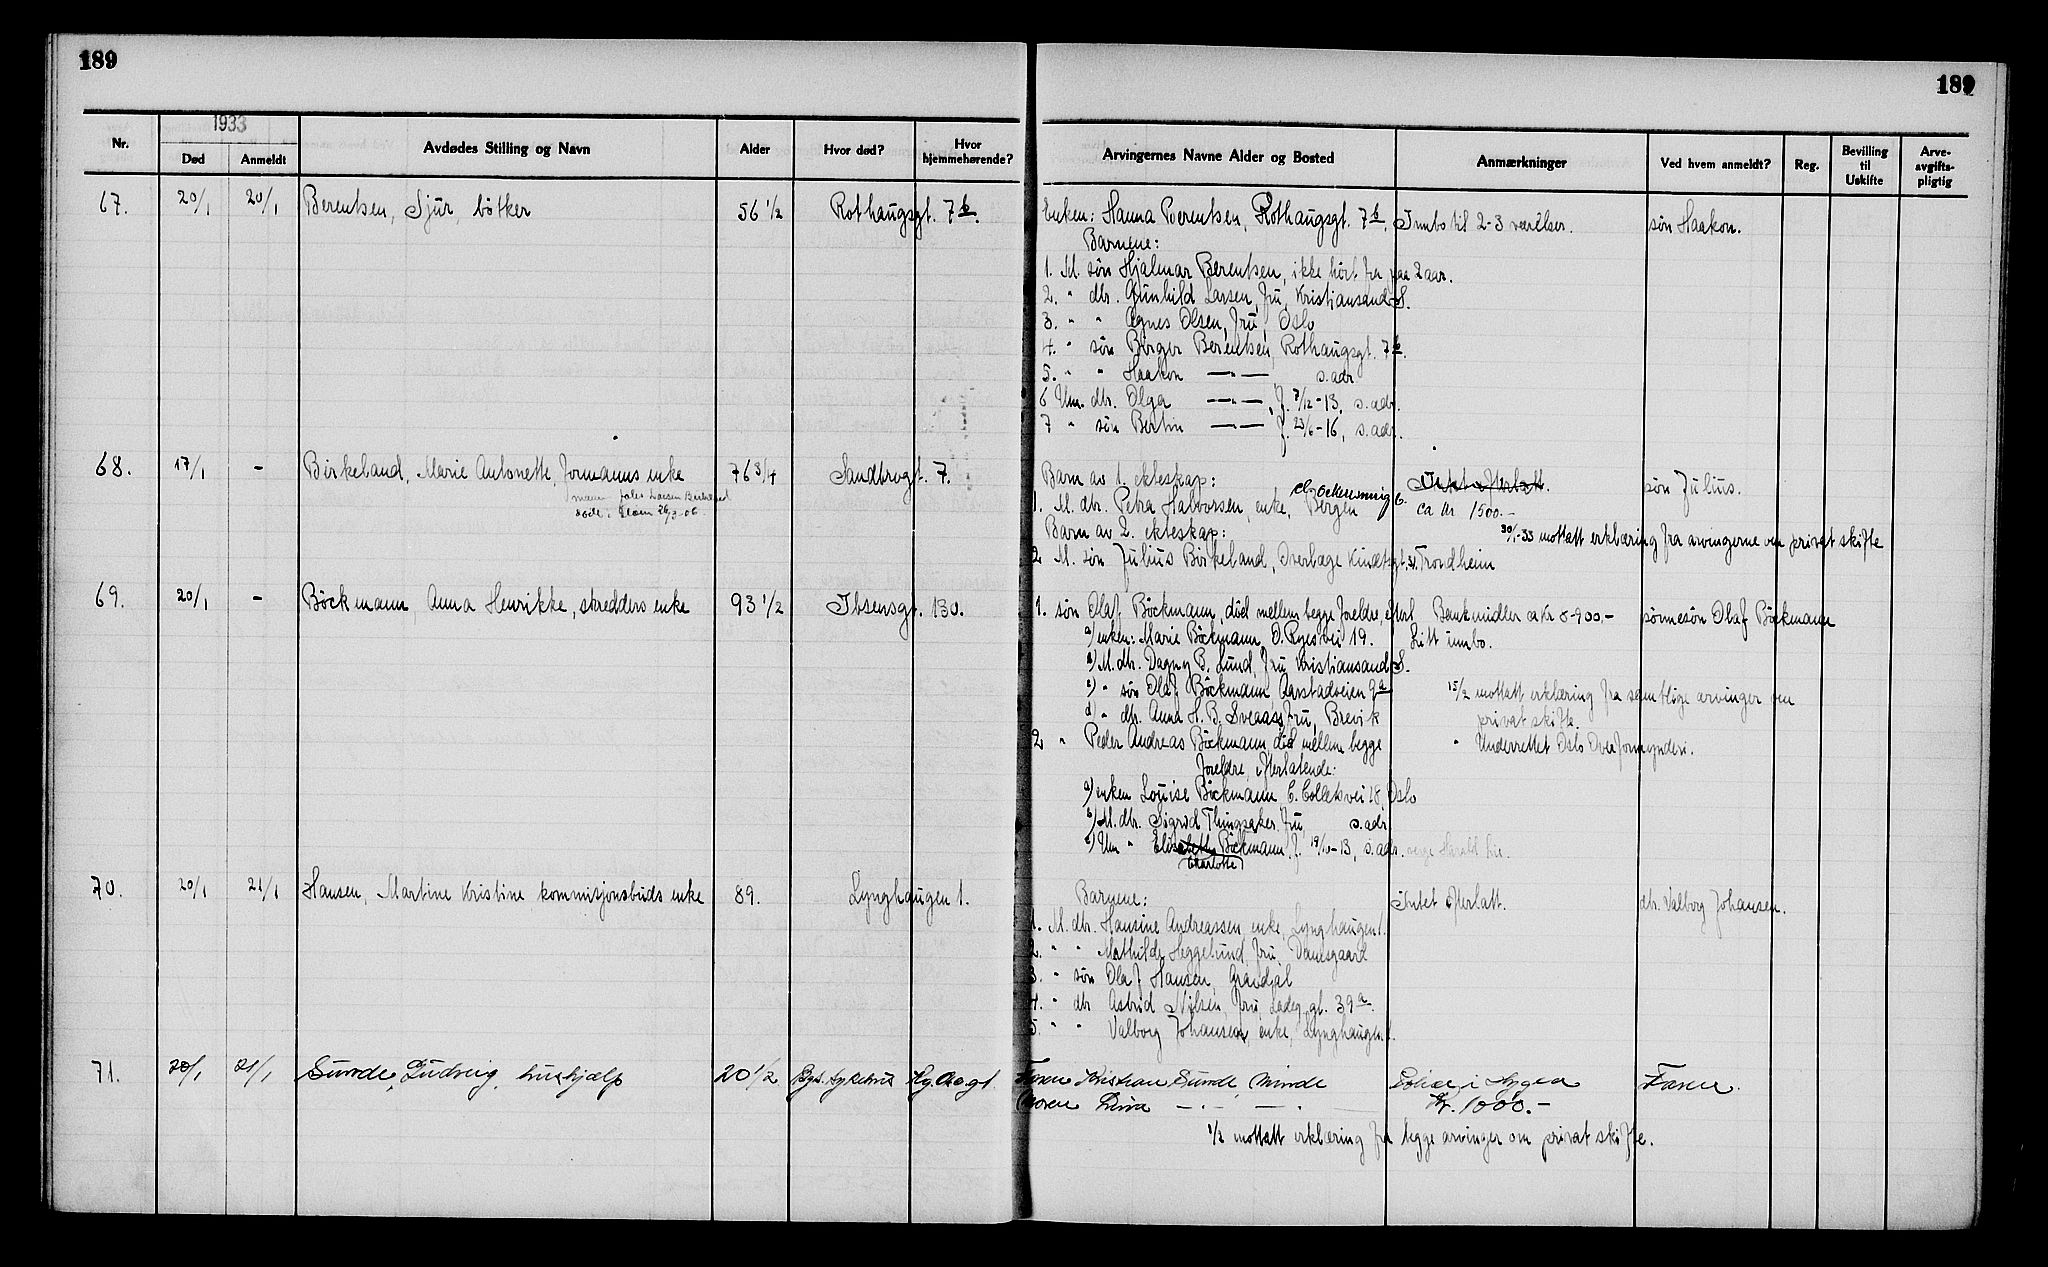 189
189
1933
Nr.
Død
Anmeldt
Avdødes Stilling og Navn
Alder
Hvor død?
Hvor hjemmehørende?
Arvingernes Navne Alder og Bosted
Anmærkninger
Ved hvem anmeldt?
Reg.
Bevilling til Uskifte
Arve-avgifts-pligtig
67. 20/1 20/1 Berentsen, Sjur, bötker 56 1/2 Rothaugsgt. 7b.
Enken: Hanna Berentsen, Rothaugsgt. 7b. Innbo til 2-3 værelser. søn Haakon.
Barnene:
1. M. søn Hjalmar Berentsen, ikke hört fra paa 2 aar.
2. " dtr. Gunhild Larsen, fru, Kristiansand S.
3. " " Agnes Olsen, fru, Oslo
4. " søn Birger Berentsen, Rothaugsgt. 7b.
5. " " Haakon —"— s. adr
6 Um. dtr. Olga —"—, f. 7/12-13, s. adr.
7 " søn Bertin —"— f. 23/6-16, s. adr.
68. 17/1 - Birkeland, Marie Antonette, formanns enke 76 3/4 Sandbrogt. 7.
mann Larsen Birkeland
26/3-06.
Barn av 1. ekteskap: Intet efterlatt. søn Julius.
1. M. dtr. Petra Halvorsen, enke, Bergen ca kr 1500.-
Barn av 2. ekteskap: 30/1-33 mottatt erklæring fra arvingerne om privat skifte
2 M. søn Julius Birkeland, Overlæge Trondheim
69. 20/1 - Böckmann, Anna Henrikke, skredders enke 93 1/2 Ibsensgt. 130.
1. søn Olaf Böckmann, död mellem begge foreldre, efterl Bankmidler ca Kr 8-900.- sønnesøn Olaf Böckmann
a) enken: Marie Böckmann, O. Ryesvei 19. Litt innbo.
b) M. dtr. Dagny B. Lund, fru, Kristiansand S.
c) " søn Olaf Böckmann, Aarstadveien 9a 15/2 mottatt erklæring fra samtlige arvinger om
d) " dtr. Anna H. B. Sveaass, fru, Brevik privat skifte.
2 " Peder Andreas Böckmann, död mellem begge " Underrettet Oslo Overformynderi.
foreldre, efterlatende:
a) enken Louise Böckmann, C. Colletsvei 18, Oslo
b) M. dtr. Sigrid Thingsaker, fru, s. adr
c) Um " Elisabeth Böckmann, f. 19/10-13, s. adr. verge Harald
Charlotte
70. 20/1 21/1 Hansen, Martine Kristine kommisjonsbuds enke 89. Lynghaugen 1.
Barnene: Intet efterlatt. dtr. Valborg Johansen.
1. M. dtr. Hansine Andreassen, enke, Lynghaugen 1.
2. " " Mathilde Heggelund, fru, Damsgaard
3. " søn Olaf Hansen, Gravdal
4. " dtr Astrid Nilsen, fru, Ladeg. gt. 39a.
5. " " Valborg Johansen, enke, Lynghaugen 1.
71. 20/1 21/1 Sunde, Ludvig, hushjælp 20 1/2 Bgs. Sykehus
Faren Kristian Sunde, Minde Polise i Hygea Faren.
Moren —"— —"— Kr. 1000.-
1/2 mottatt erklæring fra begge arvinger om privat skifte.